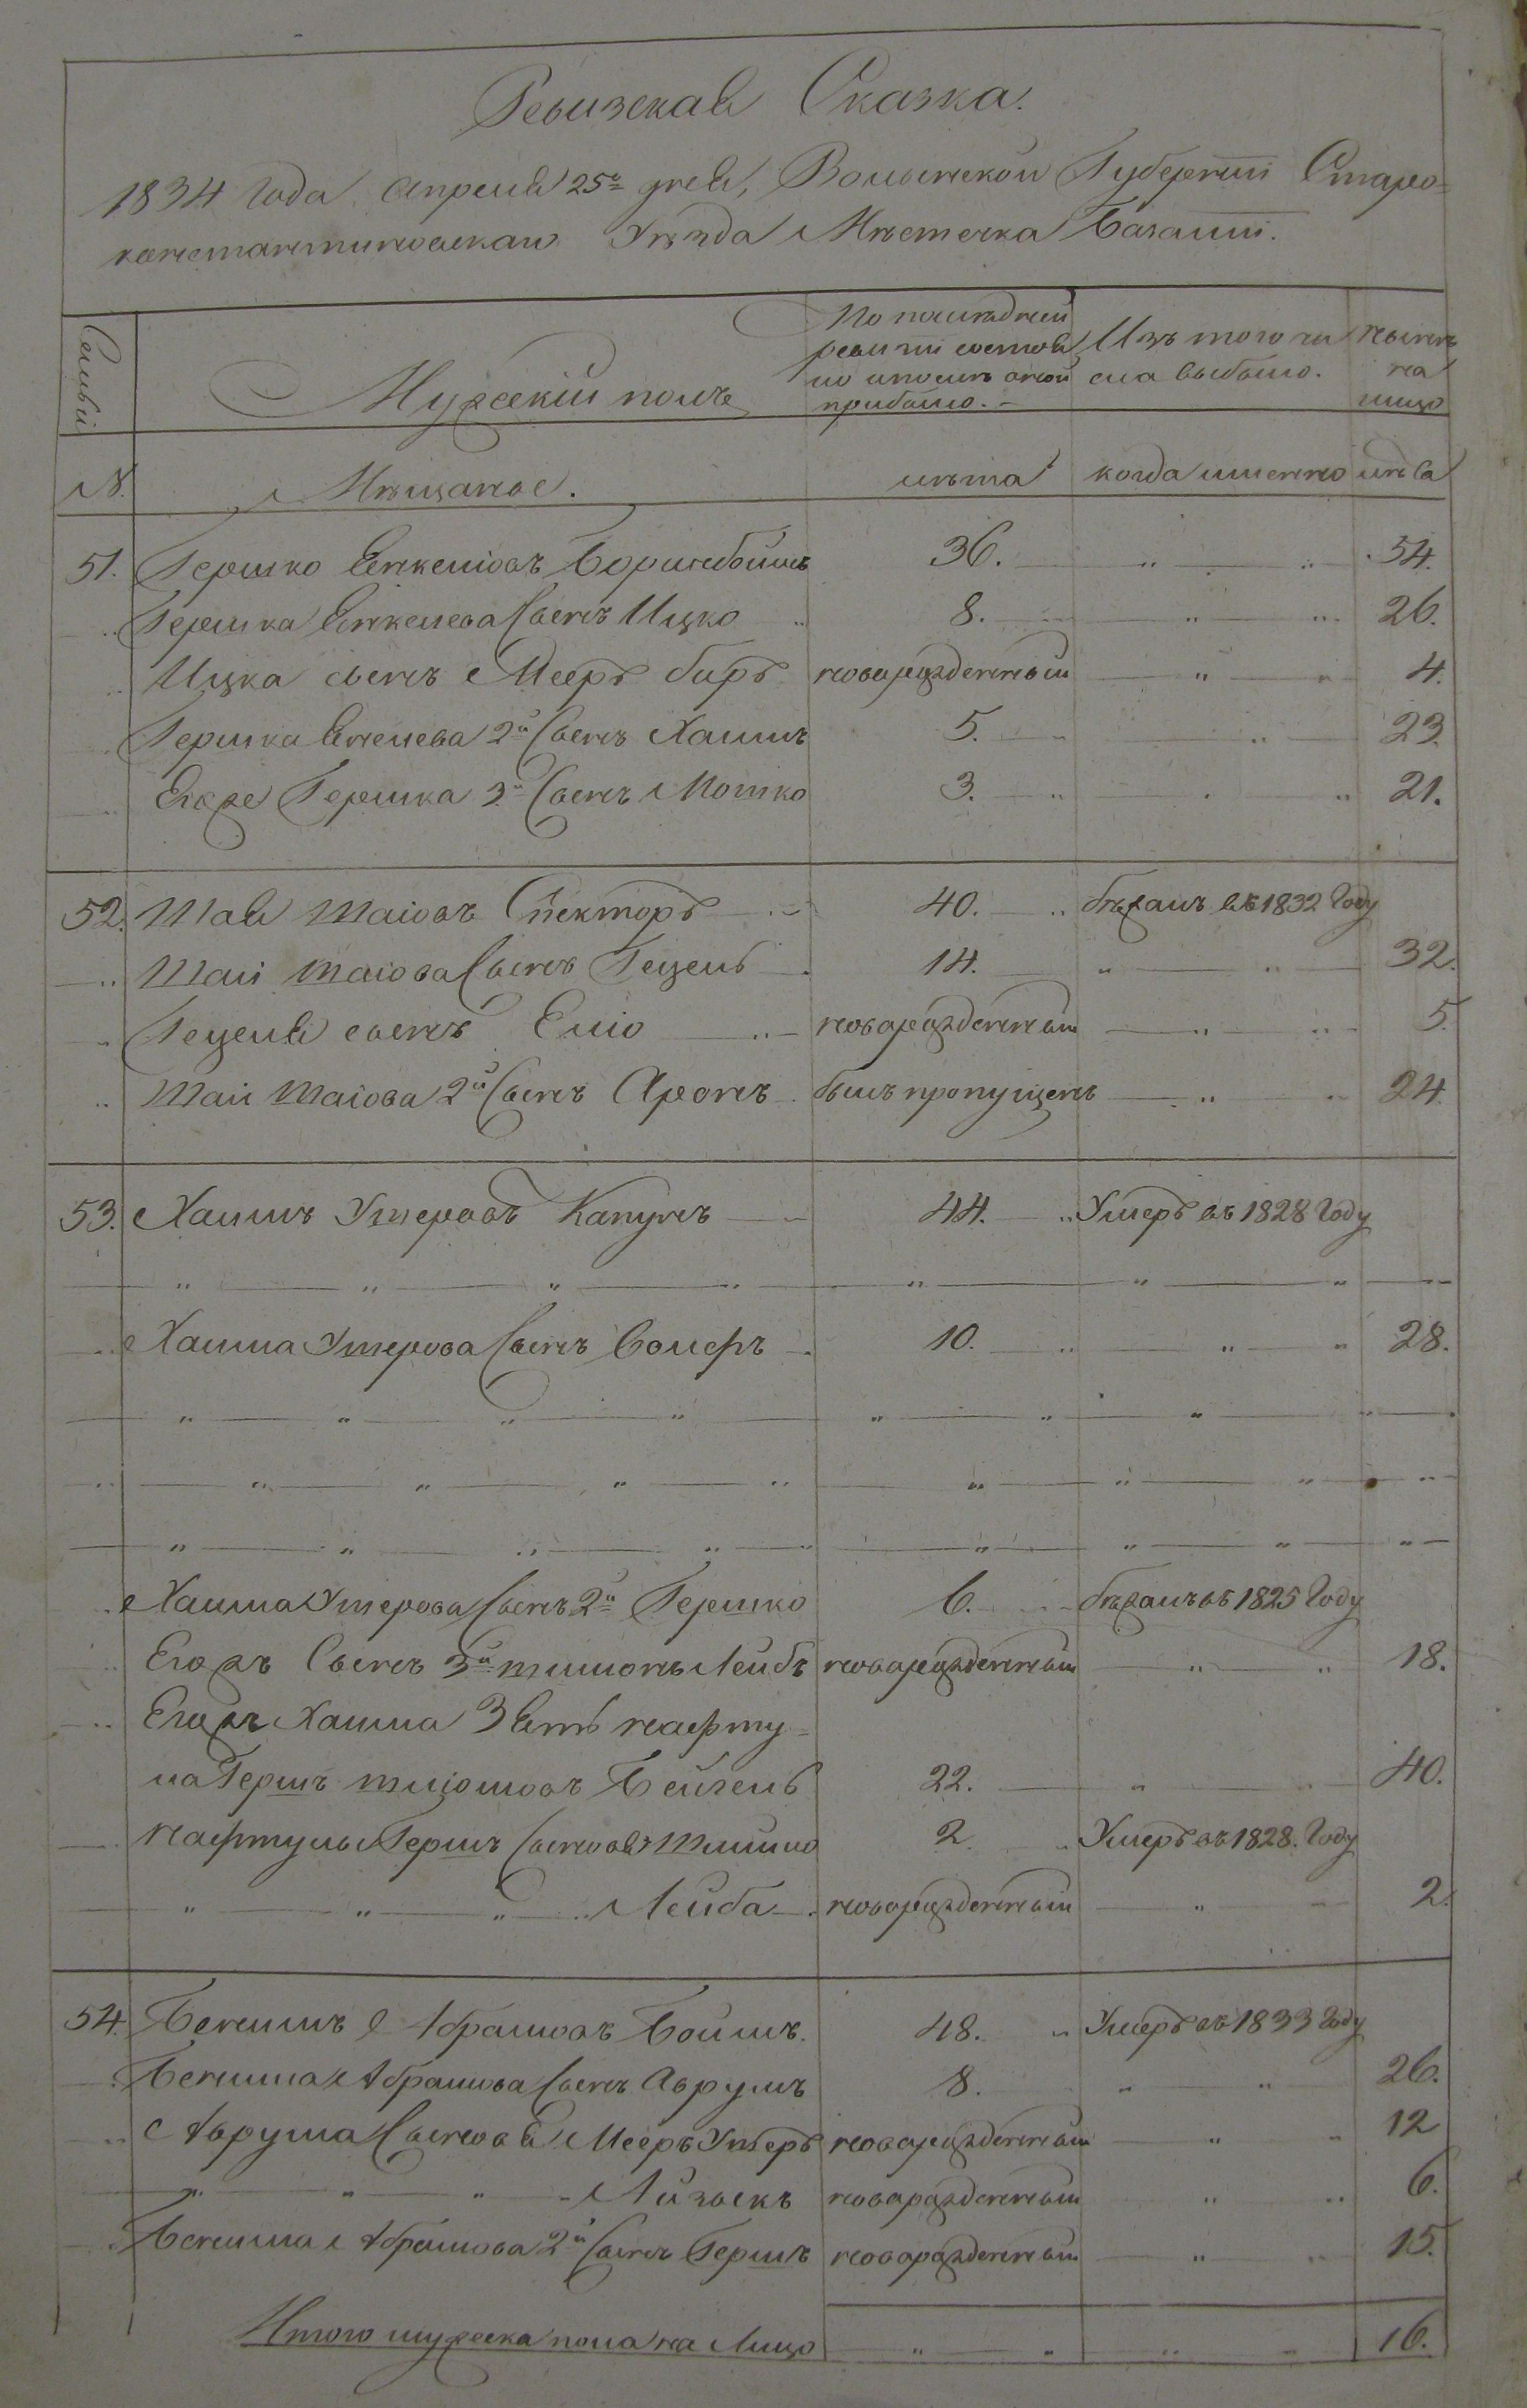 Ревизская Сказка.
1834 года апреля 25го дня, Волынской Губернии Старо=
константиновскаго Уезда Местечка Базалии.
Семьи
Мужеский полъ
По последней
ревизии состоя
ло и после оной
прибыло.
Изъ того чи
сла выбыло.
ныне
на
лицо
№
Мещане.
лета
когда именно
лета
51. Гершко Енкеліовъ Борщебоимъ 36. " " 54.
" Гершка Енкелева Сынъ Ицко " 8. " " 26.
" Ицка сынъ Мееръ биръ новорожденный " " 4.
" Гершка Енкелева 2й Сынъ Хаимъ 5. " " 23.
" Егоже Гершка 3й Сынъ Мошко 3. " " 21.
52. Шая Шаіовъ Спекторъ 40. " бежалъ въ 1832 Году
" Шаи Шаіова Сынъ Гецель 14. " " 32.
" Гецеля сынъ Еліо " новорожденный " " 5.
" Шаи Шаіова 2й Сынъ Аронъ былъ пропущенъ " " 24
53. Хаимъ Ушеровъ Капунъ 44. " Умеръ въ 1828 Году
" " " " " " " "
" Хаима Ушерова Сынъ Волеръ 10. " " " 28.
" " " " " " " "
" " " " " " " " "
" " " " " " " "
" Хаима Ушерова Сынъ 2й Гершко 6. " бежалъ въ 1825 Году
" Егожъ Сынъ 3й Шлиома Лейбъ новорожденный " " 18.
" Егожъ Хаима Зять нафту=
ла Гершъ Шліомовъ Бейгель 22. " " 40.
нафтулы Гершъ Сыновья Шлиомо 2 " Умеръ въ 1828. Году
" " " " Лейба новорожденный " 2.
54. Бениимъ Абрамовъ Боимъ. 48. " Умеръ въ 1833 Году
" Бениима Абрамова Сынъ Аврумъ 8. " " 26.
" Аврума Сыновья Мееръ Ушеръ новорожденный " " 12
" " " Айзыкъ новорожденный " " 6.
" Бениима Абрамова 2й Сынъ Гершъ новорожденный " " 15.
Итого мужеска пола на Лицо " " " 16.